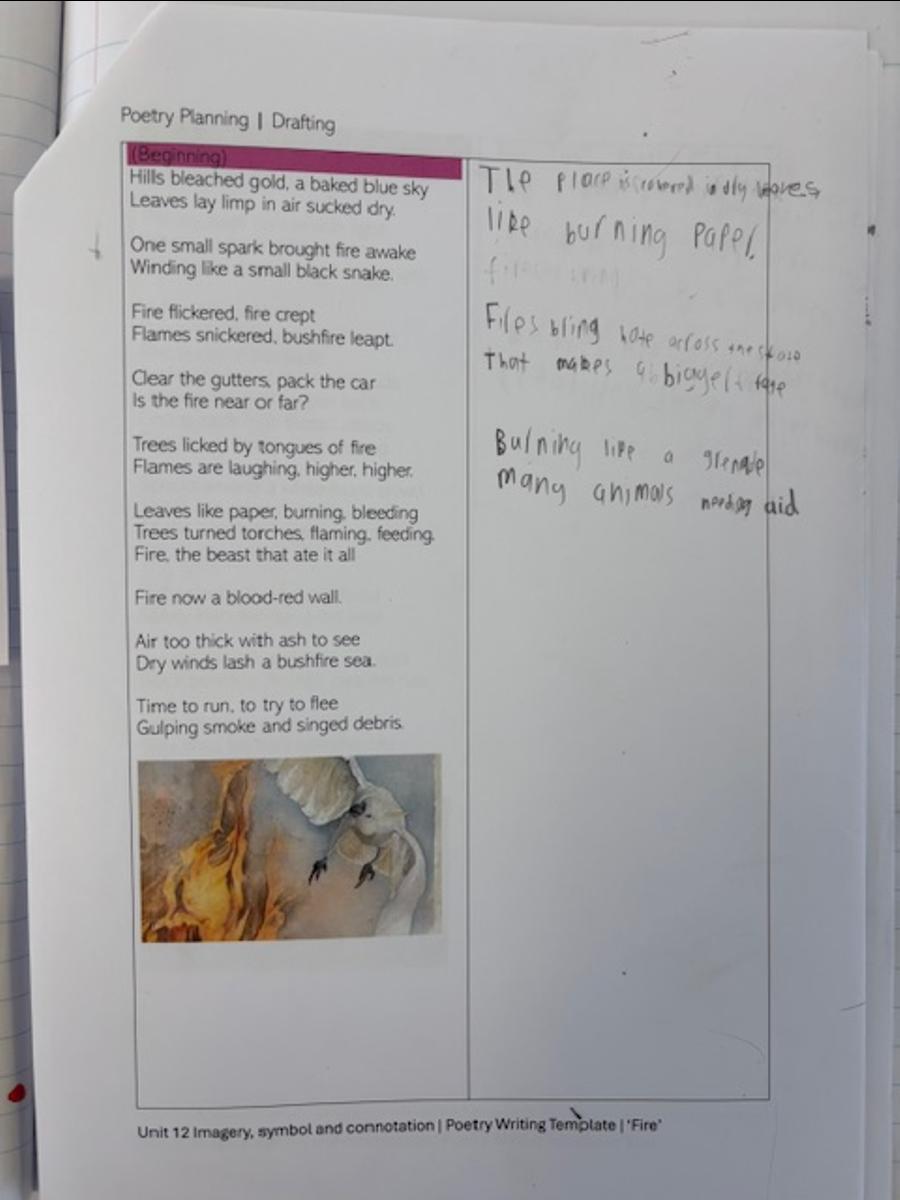 Poetry Planning | Drafting
(Beginning)
Hills bleached gold, a baked blue sky
Leaves lay limp in air sucked dry.
One small spark brought fire awake
Winding like a small black snake.
Fire flickered, fire crept
Flames snickered, bushfire leapt.
Clear the gutters, pack the car
Is the fire near or far?
Trees licked by tongues of fire
Flames are laughing, higher, higher.
Leaves like paper, burning, bleeding
Trees turned torches, flaming, feeding.
Fire, the beast that ate it all
Fire now a blood-red wall.
Air too thick with ash to see
Dry winds lash a bushfire sea.
Time to run, to try to flee
Gulping smoke and singed debris.
The place is covered in dry leaves
like burning paper.
Fires bring hate across the
That makes a bigger fate
Burning like a grenade
many animals needing aid
Unit 12 Imagery, symbol and connotation | Poetry Writing Template | 'Fire'